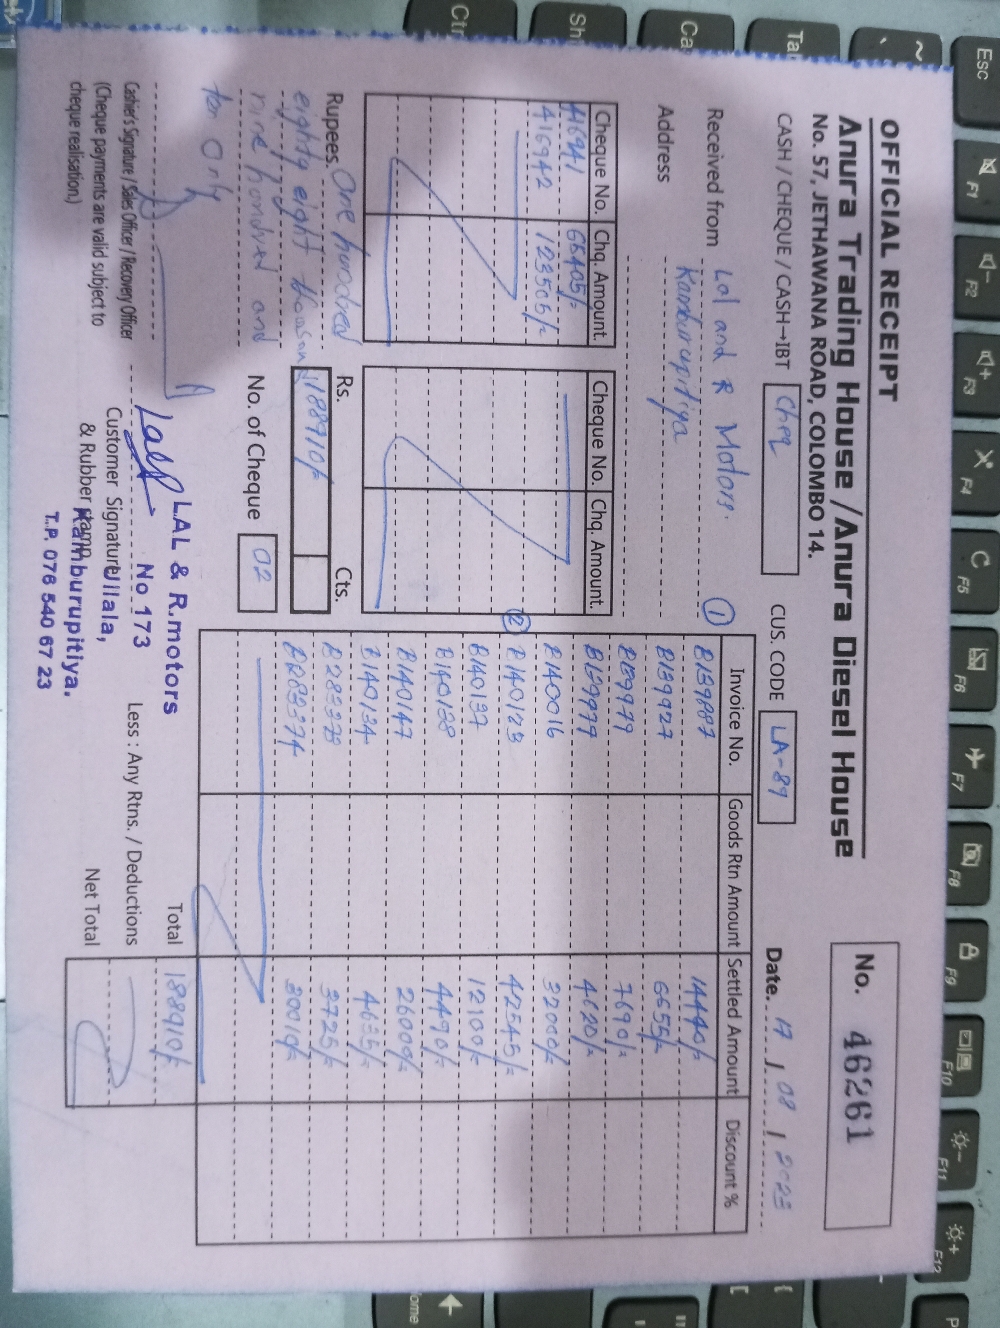 OFFICIAL RECEIPT
Anura Trading House / Anura Diesel House
No. 57, JETHAWANA ROAD, COLOMBO 14.
No. 46261
CASH / CHEQUE / CASH→IBT Cheq CUS. CODE LA-89 Date. 17 / 08 / 2023
Received from Lal and R Motors.
Address Kamburupitiya
Cheque No. Chq. Amount.
416941 66405/=
416942 123505/=
Cheque No. Chq. Amount.
Rupees. One hundred
eighty eight thousand
nine hundred and
ten only
Rs. Cts.
188910/=
No. of Cheque 02
Invoice No. Goods Rtn Amount Settled Amount Discount %
① B139887 14440/=
B139927 6655/=
B139979 7690/=
B139979 4620/=
B140016 32000/=
② B140123 42545/=
B140137 12100/=
B140138 4490/=
B140147 26000/=
B140134 4635/=
B283373 3725/=
B283374 30010/=
Total 188910/=
Less : Any Rtns. / Deductions
Net Total
Cashier's Signature / Sales Officer / Recovery Officer
(Cheque payments are valid subject to
cheque realisation.)
Customer Signature
& Rubber Stamp
LAL & R.motors
No.173
Ullala,
Kamburupitiya.
T.P. 076 540 67 23
Esc
F1
F2
F3
F4
F5
F6
F7
F8
F9
F10
F11
F12
Ctr
Sh
Ca
Ta